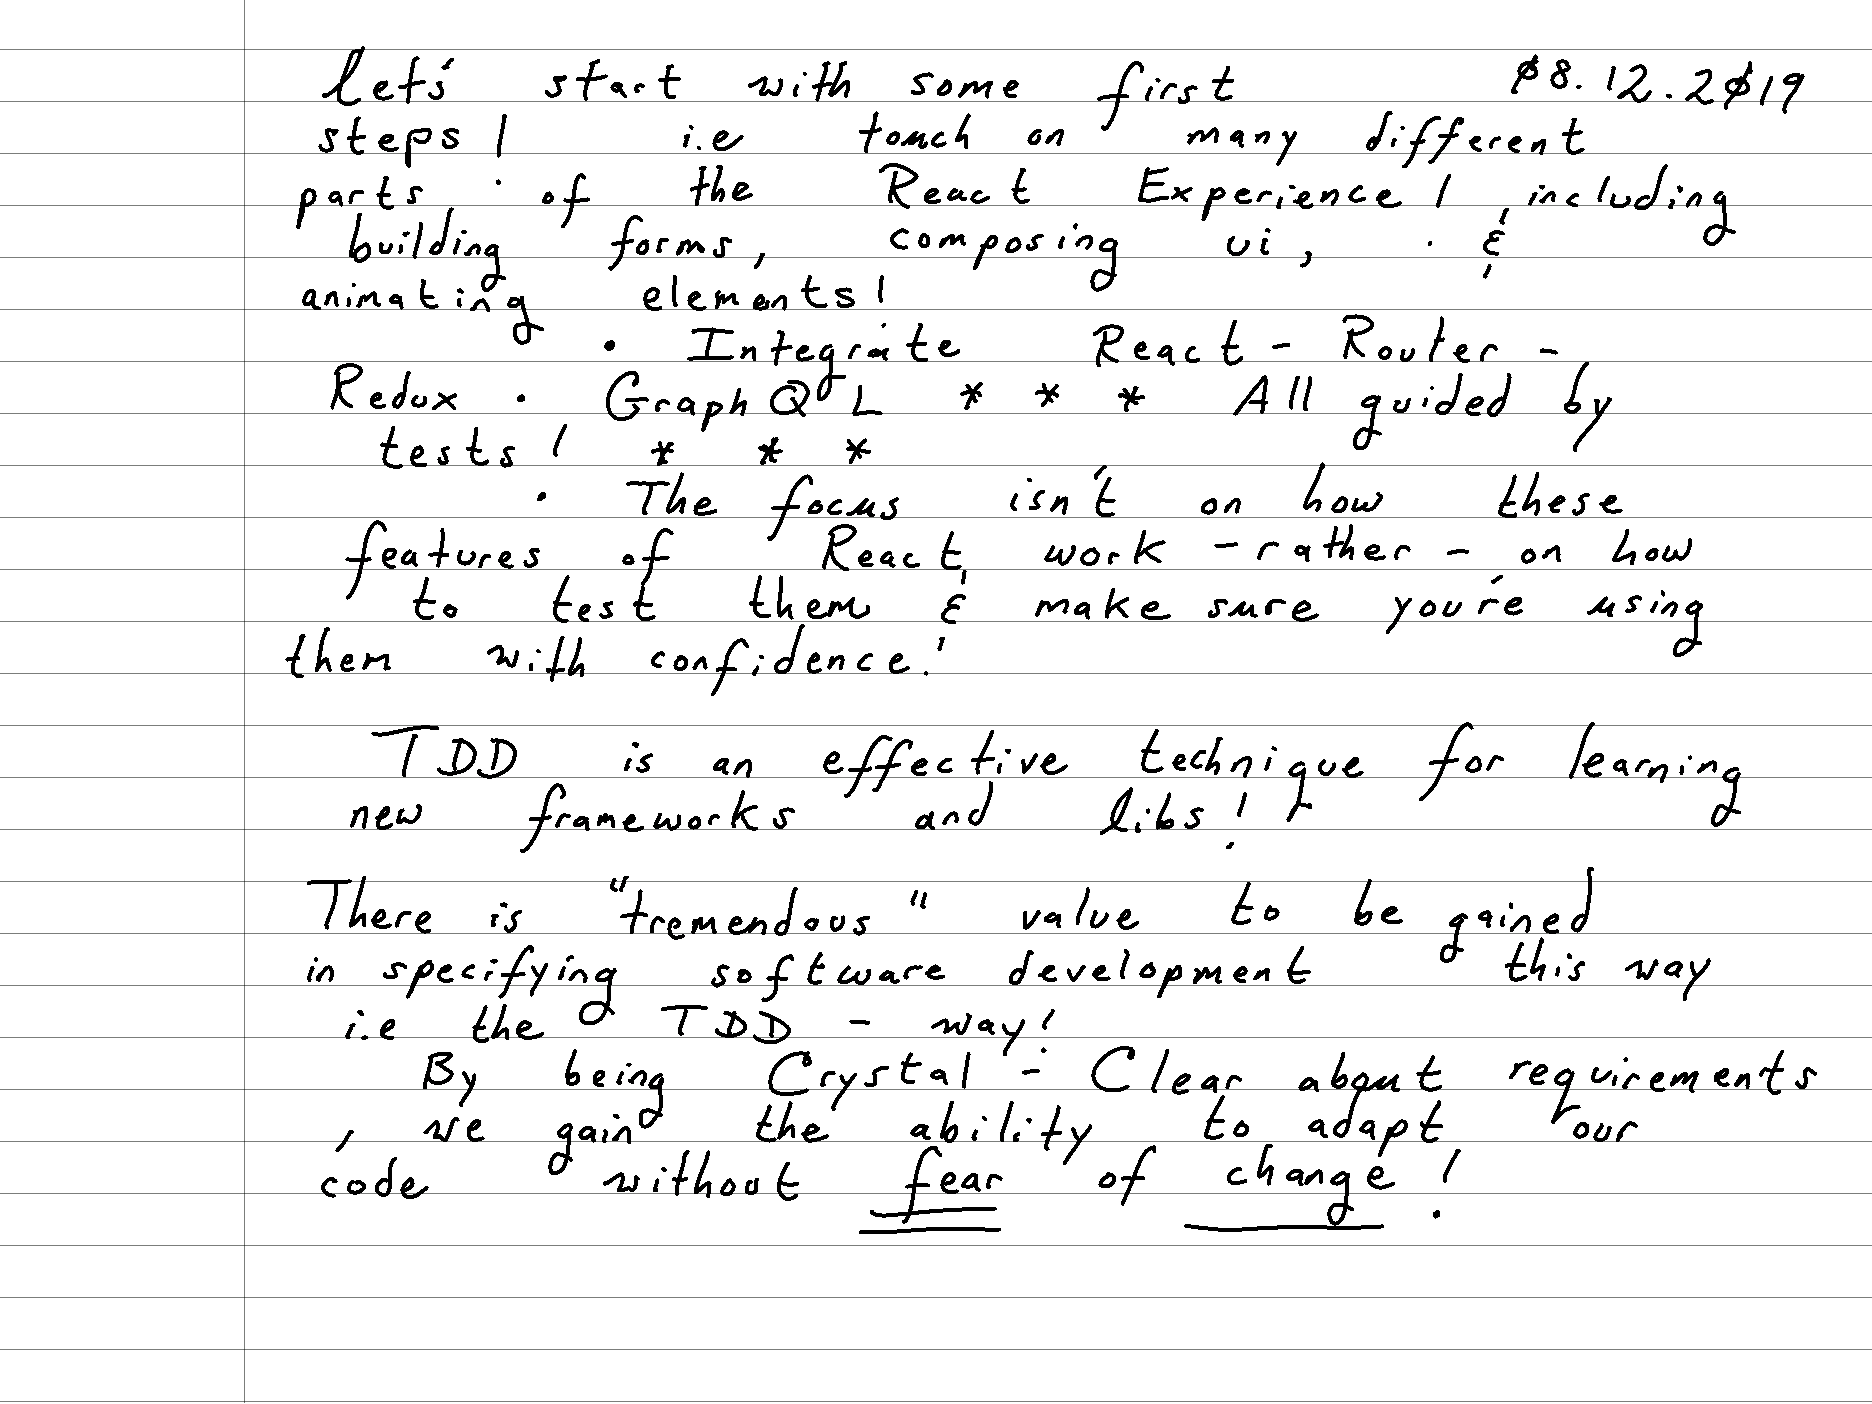 Let's start with some first 08.12.2019
steps! i.e touch on many different
parts of the React Experience!, including
building forms, composing ui, &
animating elements!
• Integrate React - Router -
Redux • GraphQL * * * All guided by
tests! * * *
• The focus isn't on how these
features of React work - rather - on how
to test them & make sure you're using
them with confidence!
TDD is an effective technique for learning
new frameworks and libs!
There is "tremendous" value to be gained
in specifying software development this way
i.e the TDD - way!
By being Crystal - Clear about requirements
, we gain the ability to adapt our
code without fear of change!